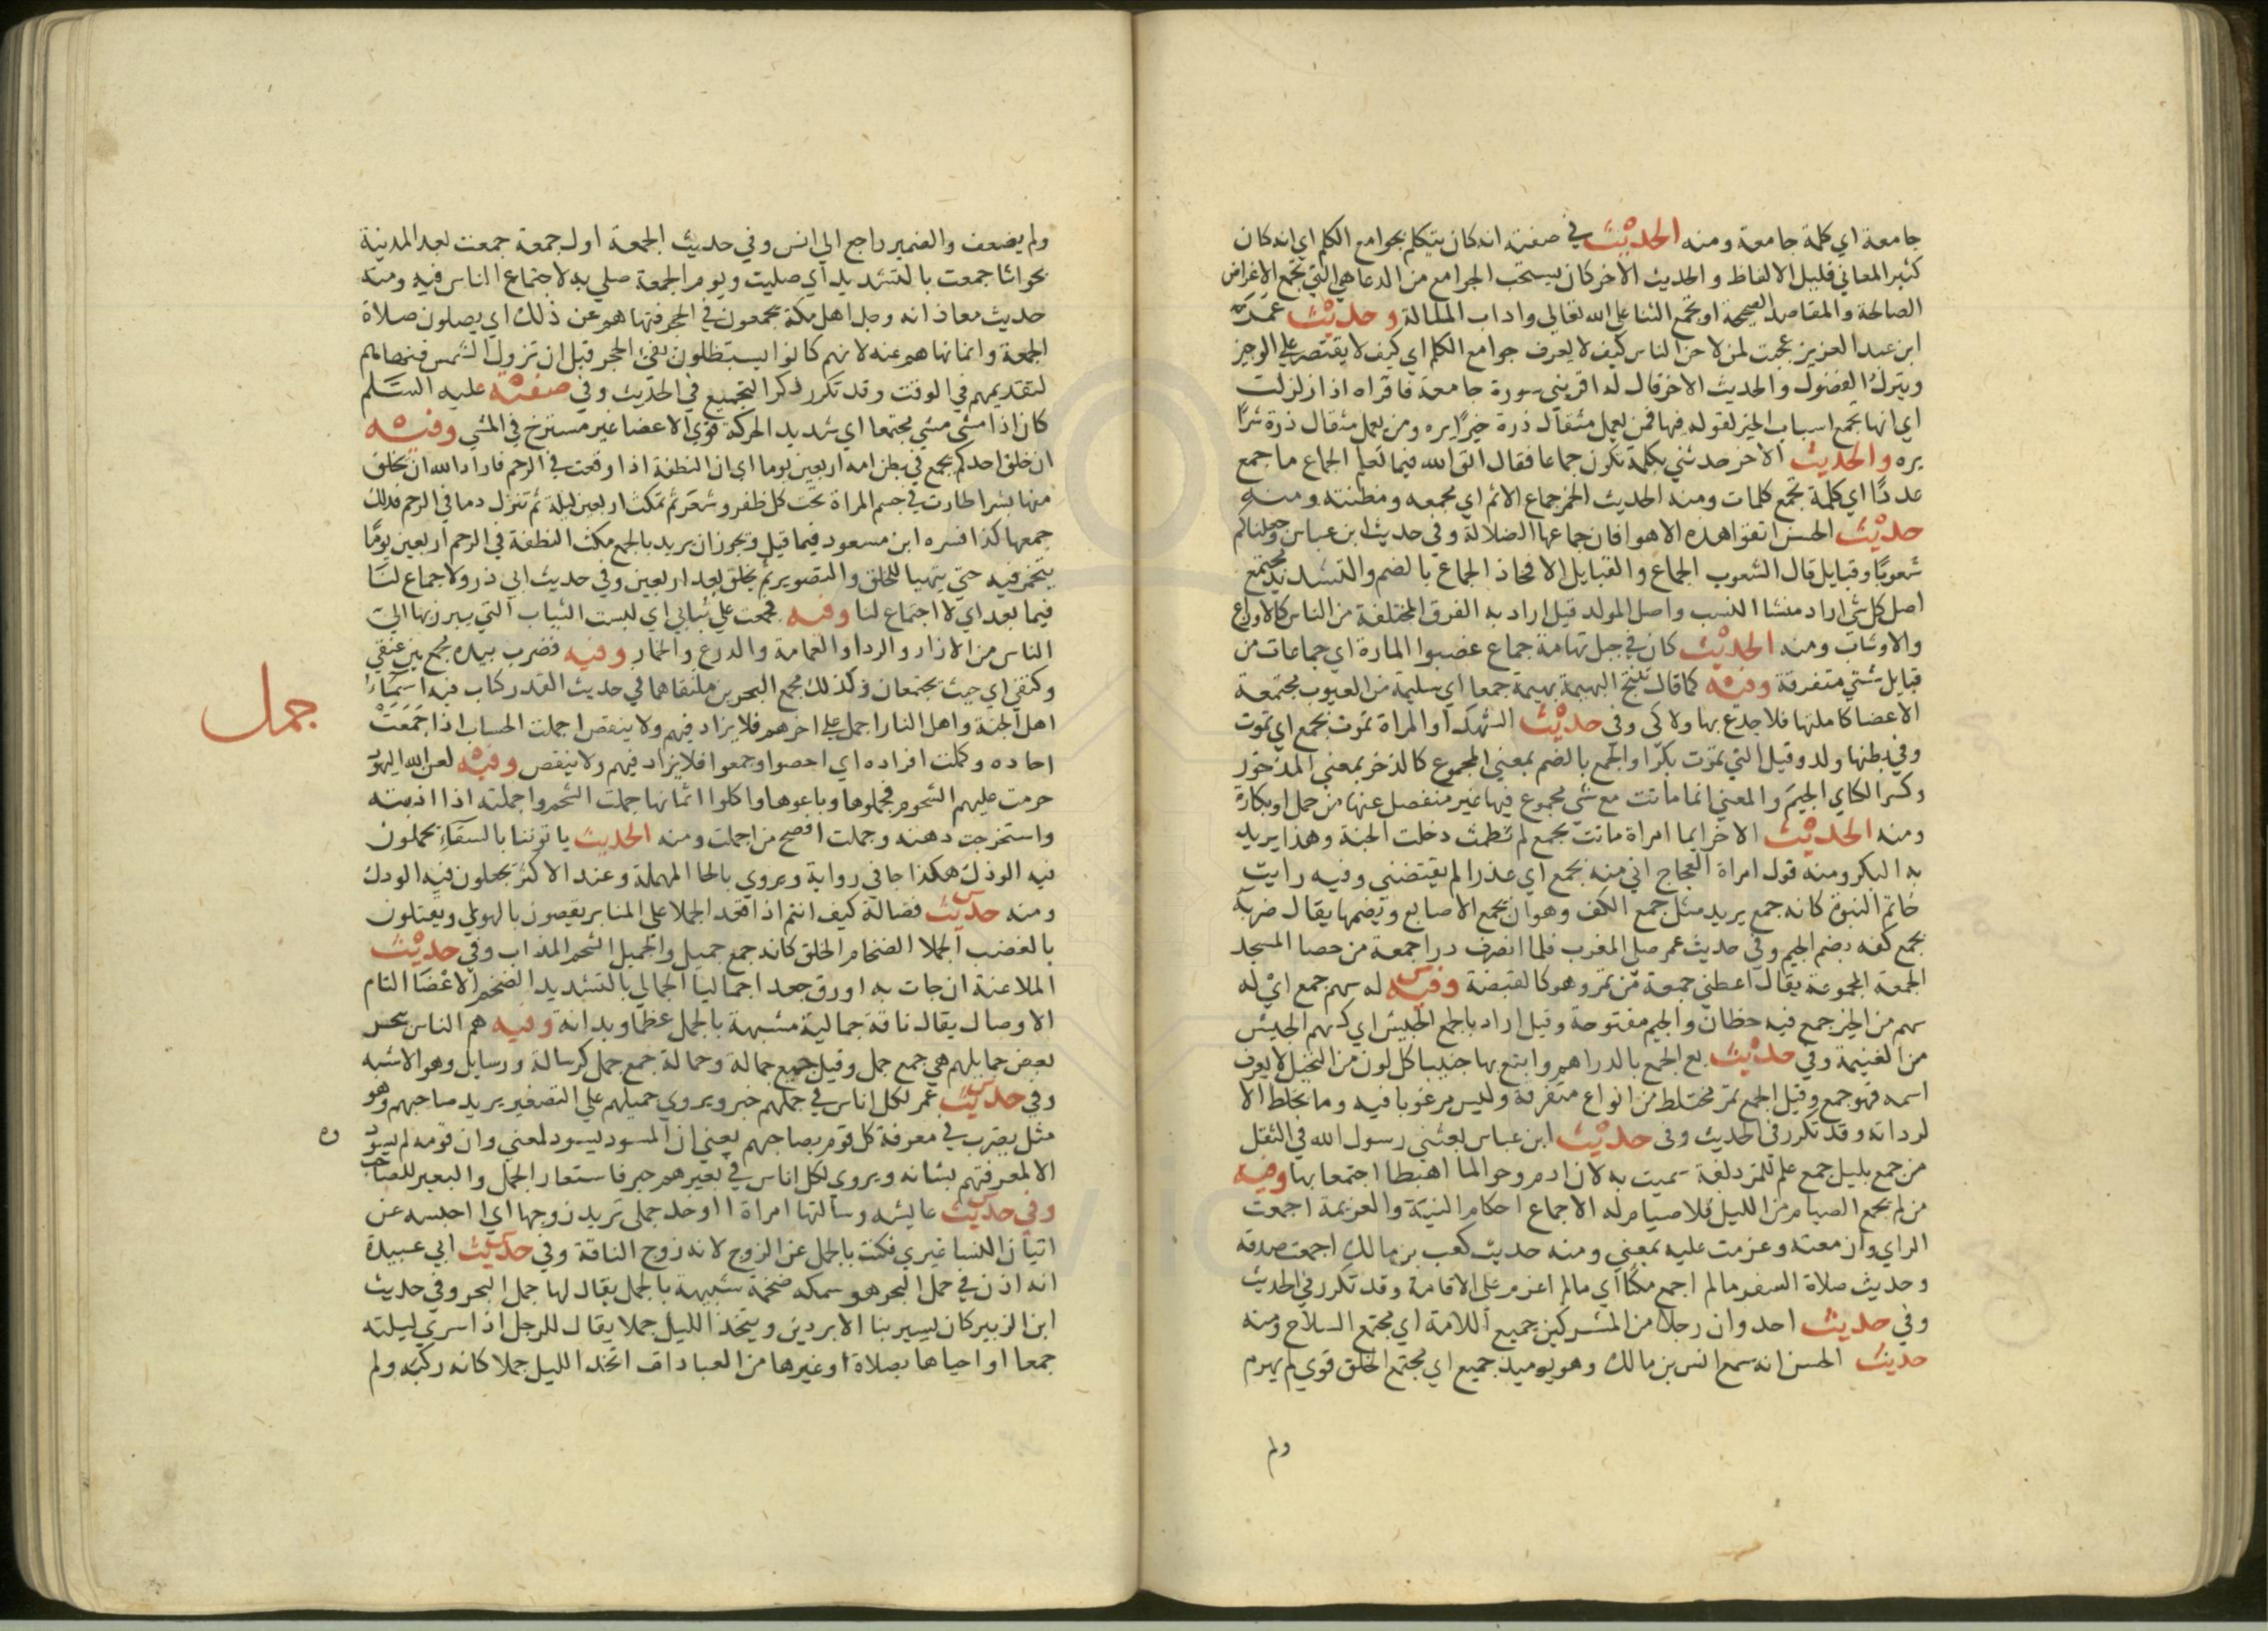 جامعة اي كلمة جامعة ومنه الحديث في صفته انه كان يتكلم بجوامع الكلم اي انه كان
كثير المعاني قليل الالفاظ والحديث الاخر كان يستحب الجوامع من الدعا هي التي تجمع الاغراض
الصالحة والمقاصد الصحيحة او تجمع الثنا علي الله تعالي واداب المسالة وحديث عمر
ابن عبد العزيز عجبت لمن لاحن الناس كيف لا يعرف جوامع الكلم اي كيف لا يقتصر علي الوجيز
ويترك الفضول والحديث الاخر قال له اقريني سورة جامعة فاقراه اذا زلزلت
اي انها تجمع اسباب الخير لقوله فيها فمن يعمل مثقال ذرة خيرا يره ومن يعمل مثقال ذرة شرا
يره والحديث الاخر حدثني بكلمة تكون جماعا فقال اتق الله فيما تعلم الجماع ما جمع
عددا اي كلمة تجمع كلمات ومنه الحديث الخمر جماع الاثم اي مجمعه ومظنته ومنه
حديث الحسن اتقوا هذه الاهوا فان جماعها الضلالة وفي حديث ابن عباس وجعلناكم
شعوبا وقبايل قال الشعوب الجماع والقبايل الافخاذ الجماع بالضم والتشديد مجتمع
اصل كل شي اراد منشا النسب واصل المولد قيل اراد به الفرق المختلفة من الناس كالاوزاع
والاوشاب ومنه الحديث كان في جبل تهامة جماع غصبوا المارة اي جماعات من
قبايل شتي متفرقة وفيه كما قال تنتج البهيمة بهيمة جمعا اي سليمة من العيوب مجتمعة
الاعضا كاملتها فلا جدع بها ولا كي وفي حديث الشهدا والمراة تموت بجمع اي تموت
وفي بطنها ولد وقيل التي تموت بكرا والجمع بالضم بمعني المجموع كالذخر بمعني المذخور
وكسر الكساي الجيم والمعني انها ماتت مع شي مجموع فيها غير منفصل عنها من حمل او بكارة
ومنه الحديث الاخر ايما امراة ماتت بجمع لم تطمث دخلت الجنة وهذا يريد
به البكر ومنه قول امراة العجاج اني منه بجمع اي عذرا لم يفتضني وفيه رايت
خاتم النبوة كانه جمع يريد مثل جمع الكف وهو ان يجمع الاصابع ويضمها يقال ضربه
بجمع كفه بضم الجيم وفي حديث عمر صلي المغرب فلما انصرف درا جمعة من حصا المسجد
الجمعة المجموعة يقال اعطني جمعة من تمر وهو كالقبضة وفيه له سهم جمع اي له
سهم من الخير جمع فيه حظان والجيم مفتوحة وقيل اراد بالجمع الجيش اي كسهم الجيش
من الغنيمة وفي حديث بع الجمع بالدراهم وابتع بها جنيبا كل لون من النخيل لا يعرف
اسمه فهو جمع وقيل الجمع تمر مختلط من انواع متفرقة وليس مرغوبا فيه وما يخلط الا
لرداته وقد تكرر في الحديث وفي حديث ابن عباس بعثني رسول الله في الثقل
من جمع بليل جمع علم للمزدلفة سميت به لان ادم وحوا لما اهبطا اجتمعا بها وفيه
من لم يجمع الصيام من الليل فلا صيام له الاجماع احكام النية والعزيمة اجمعت
الراي وازمعته وعزمت عليه بمعني ومنه حديث كعب بن مالك اجمعت صدقه
وحديث صلاة السفر ما لم اجمع مكثا اي ما لم اعزم علي الاقامة وقد تكرر في الحديث
وفي حديث احد وان رجلا من المشركين جميع اللامة اي مجتمع السلاح ومنه
حديث الحسن انه سمع انس بن مالك وهو يوميذ جميع اي مجتمع الخلق قوي لم يهرم
ولم
ولم يضعف والضمير راجع الي انس وفي حديث الجمعة اول جمعة جمعت بعد المدينة
بجواثا جمعت بالتشديد اي صليت ويوم الجمعة صلي به لاجتماع الناس فيه ومنه
حديث معاذ انه وجد اهل مكة يجمعون في الحجر فنهاهم عن ذلك اي يصلون صلاة
الجمعة وانما نهاهم عنه لانهم كانوا يستظلون بفئ الحجر قبل ان تزول الشمس فنهاهم
لتقديمهم في الوقت وقد تكرر ذكر التجميع في الحديث وفي صفته عليه السلم
كان اذا مشي مشي مجتمعا اي شديد الحركة قوي الاعضا غير مسترخ في المشي وفيه
ان خلق احدكم يجمع في بطن امه اربعين يوما اي ان النطفة اذا وقعت في الرحم فاراد الله ان يخلق
منها بشرا طارت في جسم المراة تحت كل ظفر وشعر ثم تمكث اربعين ليلة ثم تنزل دما في الرحم فذلك
جمعها كذا فسره ابن مسعود فيما قيل ويجوز ان يريد بالجمع مكث النطفة في الرحم اربعين يوما
يتخمر فيه حتي يتهيا للخلق والتصوير ثم يخلق بعد اربعين وفي حديث ابي ذر ولا جماع لنا
فيما بعد اي لا اجتماع لنا وفيه فجمعت علي ثيابي اي لبست الثياب التي يبرز بها الي
الناس من الازار والردا والعمامة والدرع والخمار وفيه فضرب بيده مجمع بين عنقي
وكتفي اي حيث يجتمعان وكذلك مجمع البحرين ملتقاهما في حديث القدر كتاب فيه اسماء
جمل
اهل الجنة واهل النار اجمل علي اخرهم فلا يزاد فيهم ولا ينقص اجملت الحساب اذا جمعت
احاده وكملت افراده اي احصوا وجمعوا فلا يزاد فيهم ولا ينقص وفيه لعن الله اليهود
حرمت عليهم الشحوم فجملوها وباعوها واكلوا اثمانها جملت الشحم واجملته اذا اذبته
واستخرجت دهنه وجملت افصح من اجملت ومنه الحديث ياتوننا بالسقاء يجملون
فيه الودك هكذا جا في رواية ويروي بالحا المهملة وعند الاكثر يجعلون فيه الودك
ومنه حديث فضالة كيف انتم اذا قعد الجملا علي المنابر يقضون بالهوي ويقتلون
بالغضب الجملا الضخام الخلق كانه جمع جميل والجميل الشحم المذاب وفي حديث
الملاعنة ان جات به اورق جعدا جماليا الجمالي بالتشديد الضخم الاعضا التام
الاوصال يقال ناقة جمالية مشبهة بالجمل عظما وبدانة وفيه هم الناس بنحر
بعض جمايلهم هي جمع جمل وقيل جمع جمالة وجمالة جمع جمل كرسالة ورسايل وهو الاشبه
وفي حديث عمر لكل اناس في جملهم خبر ويروي جميلهم علي التصغير يريد صاحبهم وهو
مثل يضرب في معرفة كل قوم بصاحبهم يعني ان المسود يسود لمعني وان قومه لم يسود
وه
الا لمعرفتهم بشانه ويروي لكل اناس في بعيرهم خبر فاستعار الجمل والبعير للصاحب
وفي حديث عايشه وسالتها امراة ااوخذ جملي تريد زوجها اي احبسه عن
اتيان النسا غيري فكنت بالجمل عن الزوج لانه زوج الناقة وفي حديث ابي عبيدة
انه اذن في جمل البحر هو سمكه ضخمة شبيهة بالجمل يقال لها جمل البحر وفي حديث
ابن الزبير كان يسير بنا الابردين ويتخذ الليل جملا يقال للرجل اذا سري ليلته
جمعا او احياها بصلاة او غيرها من العبادات اتخذ الليل جملا كانه ركبه ولم